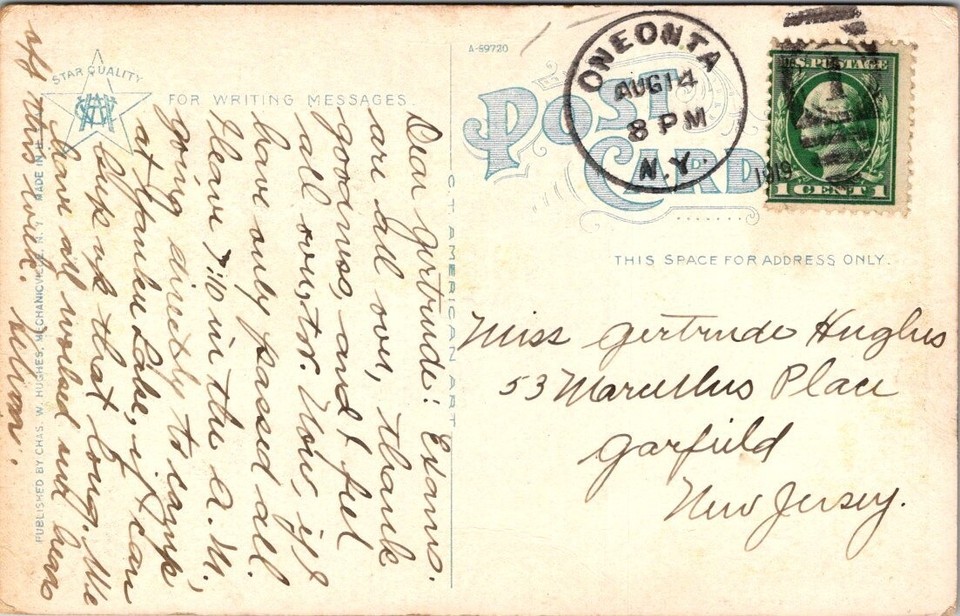 STAR QUALITY
FOR WRITING MESSAGES.
Dear Gertrude: Exams.
are all over, thank
goodness, and I feel
all over, too. Now, if I
have only passed all.
Leave 7:10 in the A.M.,
going directly to camp
at Yankee Lake, if I can
keep up that long. We
have all worked and
this week.
Lillian.
PUBLISHED BY CHAS. W. HUGHES, MECHANICVILLE, N.Y. MADE IN
C.T. AMERICAN ART
A-89720
POST CARD
ONEONTA
AUG 14
8 PM
N.Y.
1919
U.S. POSTAGE
1 CENT 1
THIS SPACE FOR ADDRESS ONLY.
Miss Gertrude Hughes
53 Marcellus Place
Garfield
New Jersey.